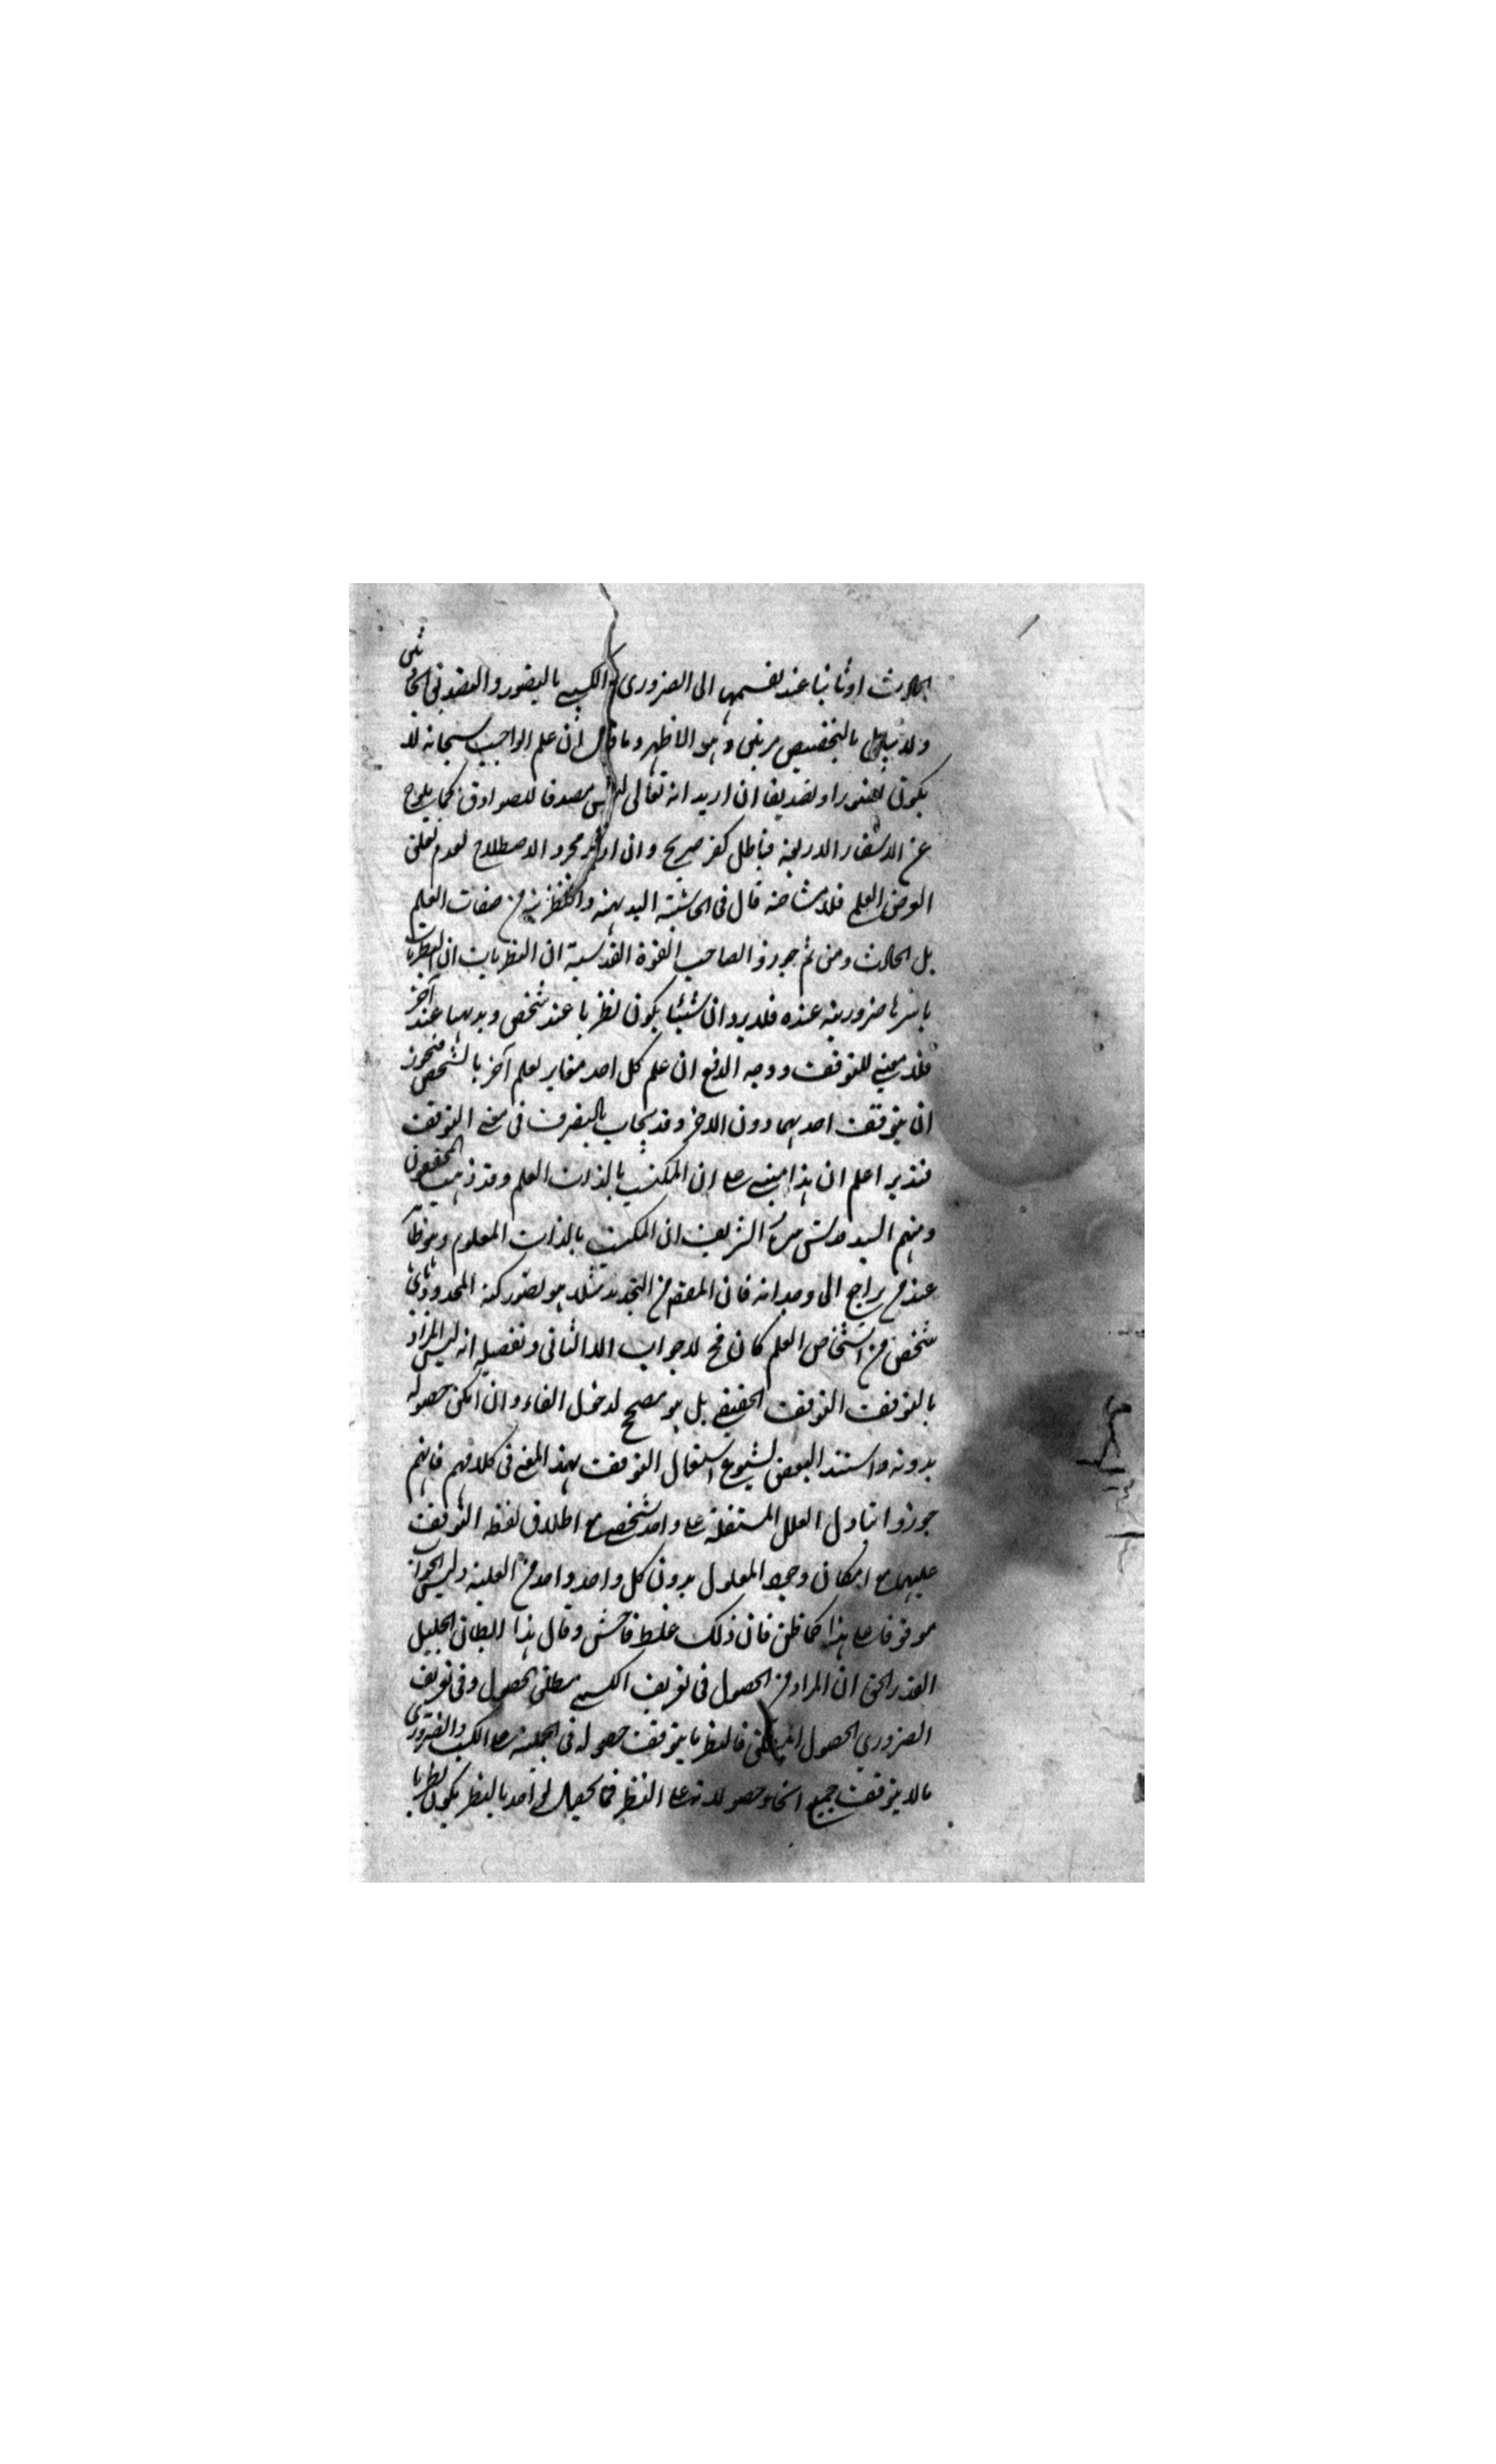 بالحادث او ثانيا عند تقسيمها الى الضروري والكسبي بالتصور والتصديق الحادثين
ولا سبيل بالتخصيص مرتين وهو الاظهر وما قال ان علم الواجب سبحانه لا
يكون تصورا وتصديقا ان اريد انه تعالى ليس مصدقا للصوادق كما يلوح
عن الاسفار الاربعة فباطل كفر صريح وان اريد مجرد الاصطلاح لعدم تعلق
الغرض العلم فلا مشاحة قال في الحاشية البديهية والنظرية من صفات العلم
بل الحادث ومن ثم جوزوا لصاحب القوة القدسية ان النظريات
باسرها ضرورية عنده فلا يرد ان شيئا يكون نظريا عند شخص وبديهيا عند آخر
فلا معنى للتوقف ووجه الدفع ان علم كل احد مغاير لعلم آخر بالشخص فيجوز
ان يتوقف احدهما دون الاخر وقد يجاب بالتصرف في معنى التوقف
فتدبر اعلم ان هذا مبني على ان المكتسب بالذات العلم وقد ذهب المحققون
ومنهم السيد قدس سره الشريف ان المكتسب بالذات المعلوم وهو ظاهر
عند من يراجع الى وجدانه فان المقصود من التحديد مثلا هو تصور كنه المحدود لا
شخص من اشخاص العلم كان فح لا جواب الا الثاني وتفصيله انه ليس المراد
بالتوقف التوقف الحقيقي بل هو مصحح لدخول الفاء وان امكن حصوله
بدونه واستند البعض لشيوع استعمال التوقف بهذا المعنى في كلامهم فانهم
جوزوا تبادل العلل المستقلة على واحد شخصي مع اطلاق لفظ التوقف
عليها مع امكان وجود المعلول بدون كل واحد واحد من العلية وليس الجواب
موقوفا على هذا كما ظن فان ذلك غلط فاحش وقال هذا الجليل
القدر الحق ان المراد من الحصول في تعريف الكسبي مطلق الحصول وفي تعريف
الضروري الحصول المطلق فالنظر ما يتوقف حصوله في الجملة على الكسب والضروري
مالا يتوقف جميع انحاء حصولاته على النظر فما يحصل لواحد بالنظر يكون نظريا